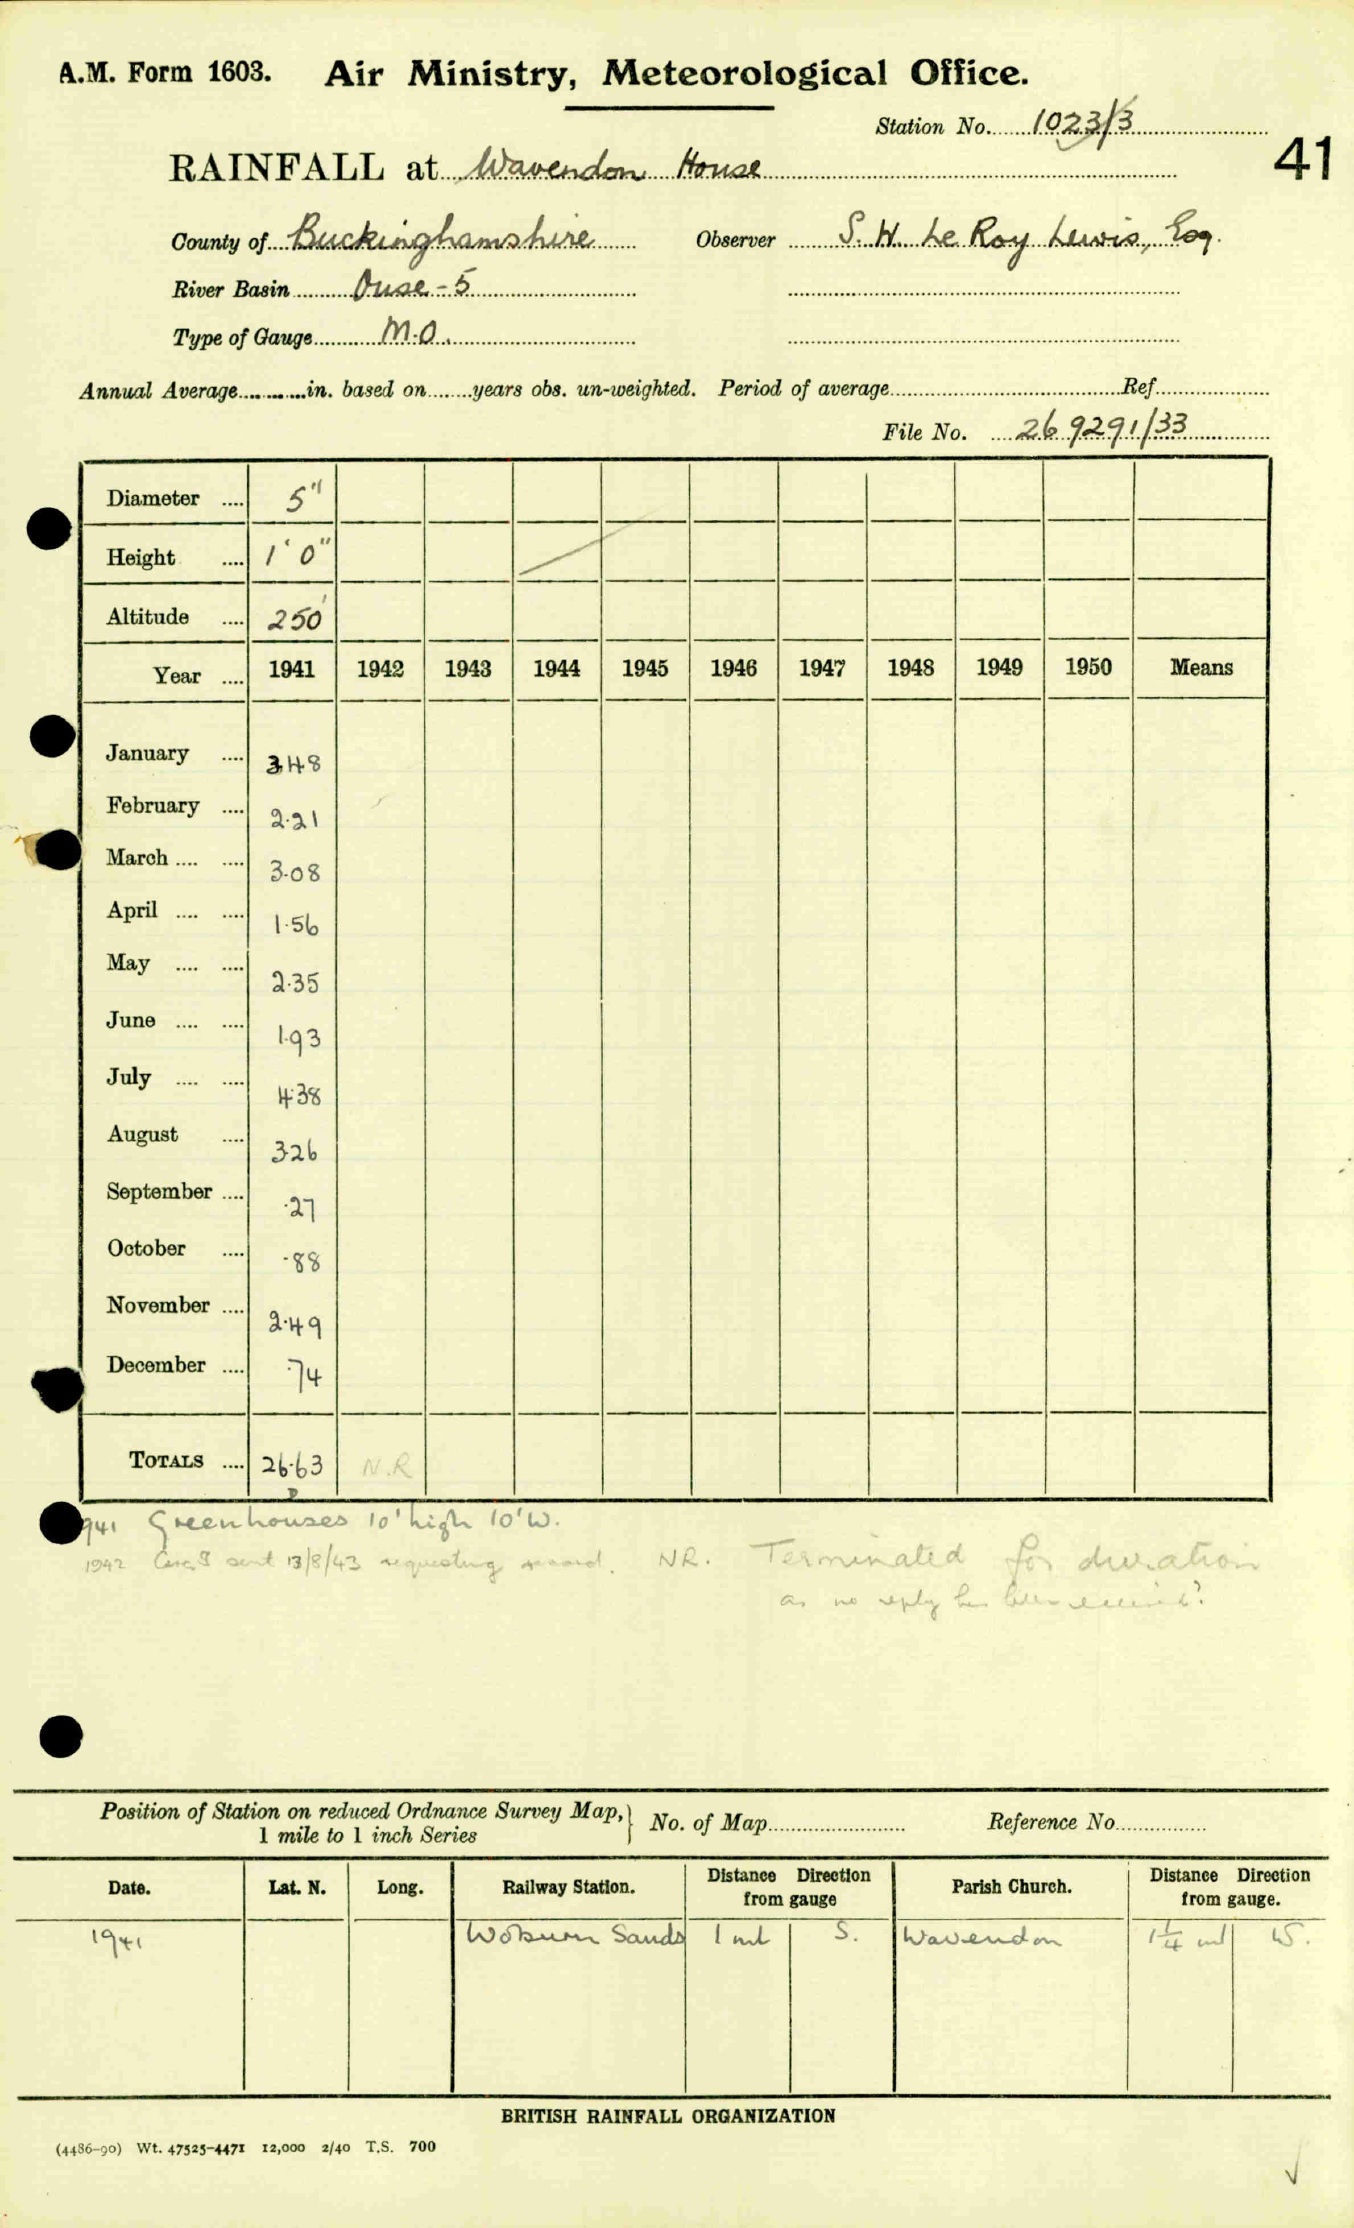 A.M. Form 1603. Air Ministry, Meteorological Office.
Station No. 1023/3
41
RAINFALL at Wavendon House
County of Buckinghamshire Observer S. W. Le Roy Lewis, Esq.
River Basin Ouse-5
Type of Gauge M.O.
Annual Average in. based on years obs. un-weighted. Period of average Ref
File No. 269291/33
Diameter 5"
Height 1' 0"
Altitude 250'
Year 1941 1942 1943 1944 1945 1946 1947 1948 1949 1950 Means
January 3.48
February 2.21
March 3.08
April 1.56
May 2.35
June 1.93
July 4.38
August 3.26
September .27
October .88
November 2.49
December .74
TOTALS 26.63 N.R
D
1941 Greenhouses 10' high 10' W.
1942 sent 13/8/43 requesting record. NR. Terminated for duration
as no reply has been received?
Position of Station on reduced Ordnance Survey Map, 1 mile to 1 inch Series } No. of Map Reference No.
Date. Lat. N. Long. Railway Station. Distance Direction from gauge Parish Church. Distance Direction from gauge.
1941 Woburn Sands 1 ml S. Wavendon 1¼ ml W.
BRITISH RAINFALL ORGANIZATION
(4486-90) Wt. 47525-4471 12,000 2/40 T.S. 700